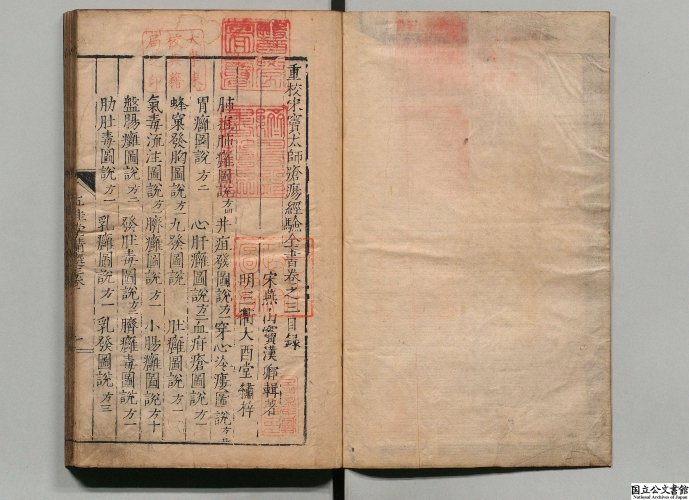 重校宋竇太師瘡瘍經驗全書卷之三目錄
宋燕山竇漢卿輯著
明三衢大酉堂繡梓
肺癰圖說 井疽發圖說方一 穿心冷瘻圖說
胃癰圖說方二 心肝癰圖說方一 血疳瘡圖說方一
蜂窠發胸圖說方一 九發圖說 肚癰圖說方一
氣毒流注圖說方一 臍癰圖說方一 小腸癰圖說方十
盤腸癰圖說方二 發肚毒圖說方一 臍癰毒圖說方一
肋肚毒圖說方一 乳癰圖說方一 乳發圖說方三
国立公文書館
National Archives of Japan